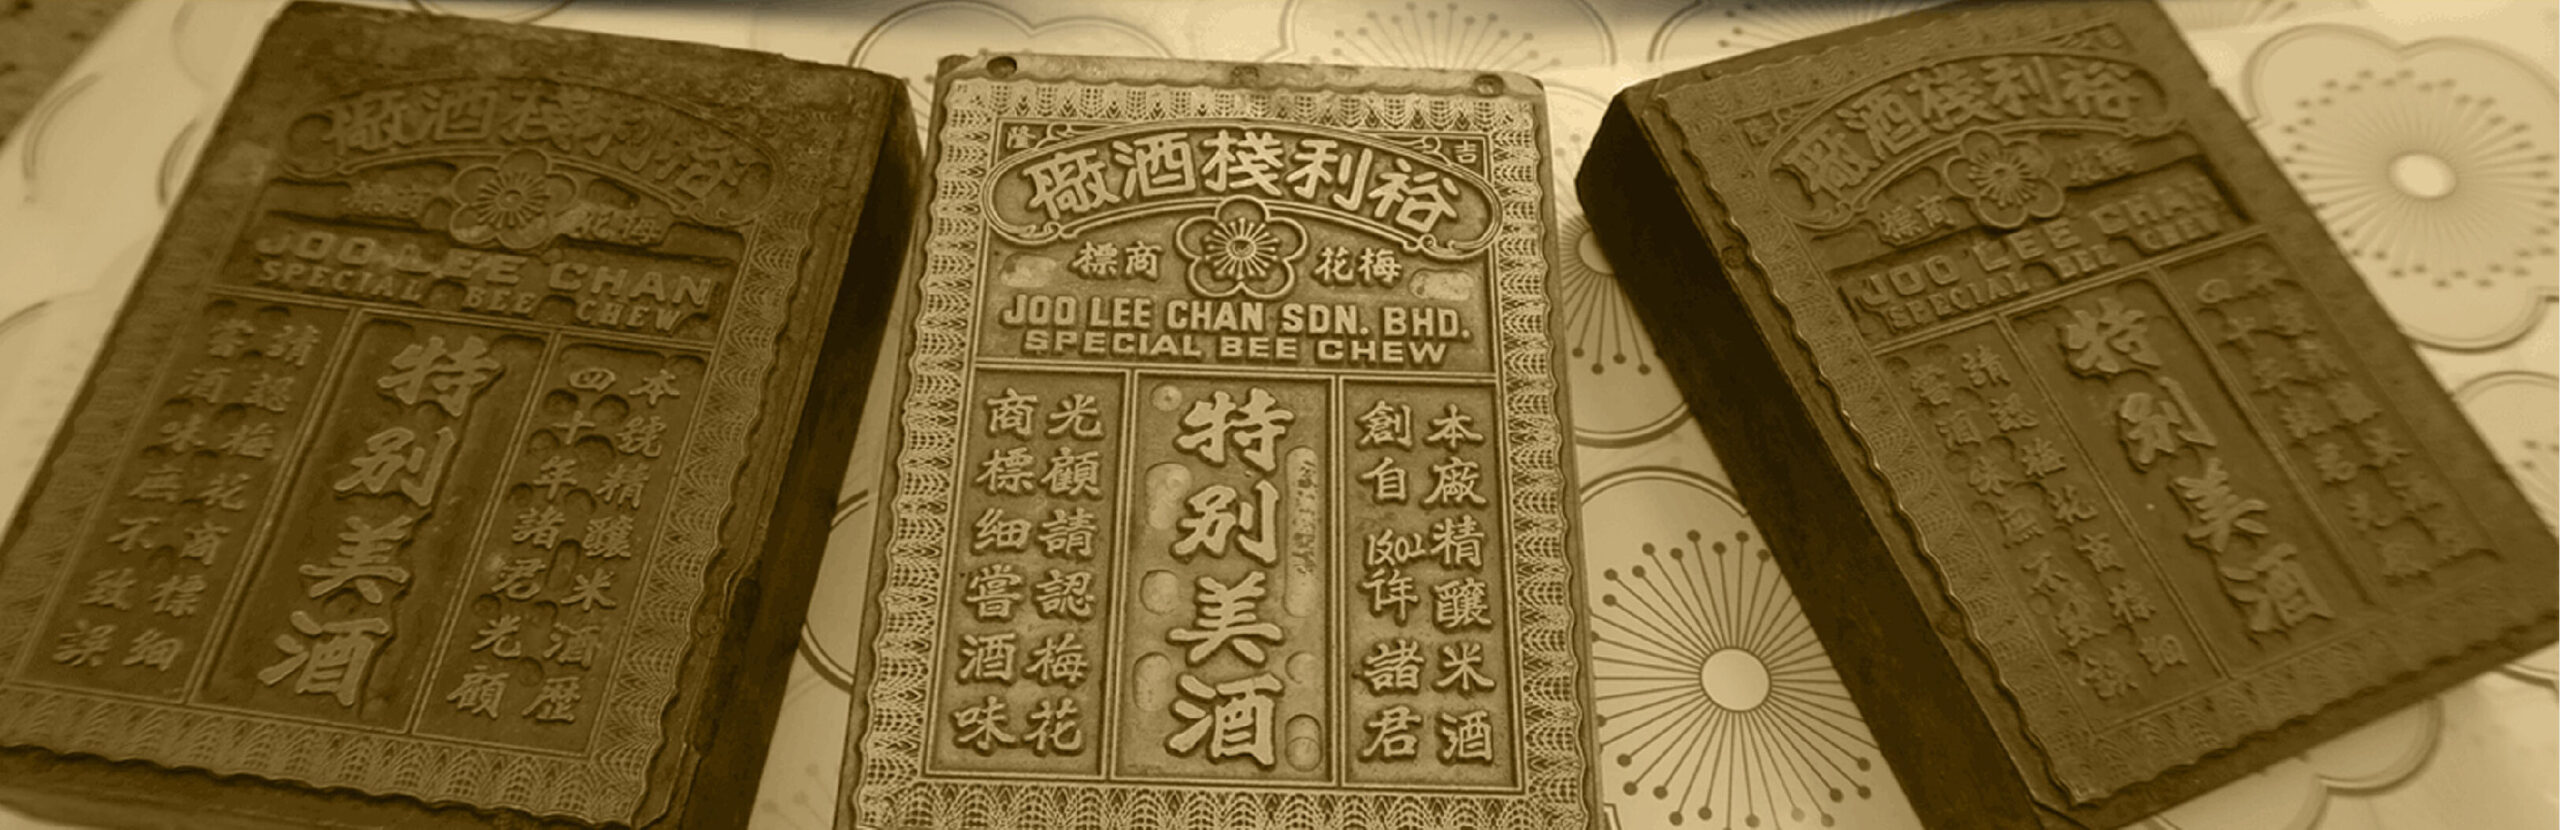 裕利棧酒廠
梅花 商標
JOO LEE CHAN
SPECIAL BEE CHEW
本號精釀米酒歷
四十年諸君光顧
特別美酒
請認梅花商標細
嘗酒味無不致誤
吉隆
裕利棧酒廠
梅花 商標
JOO LEE CHAN SDN. BHD.
SPECIAL BEE CHEW
本廠精釀米酒
創自 年諸君
特別美酒
光顧請認梅花
商標細嘗酒味
裕利棧酒廠
梅花 商標
JOO LEE CHAN
SPECIAL BEE CHEW
特別美酒
請認梅花商標細
嘗酒味無不致誤